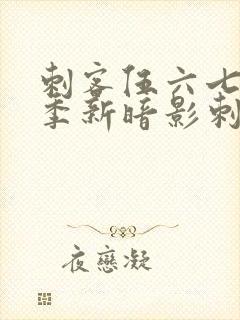 刺客伍六七
季新暗影刺
夜戀凝